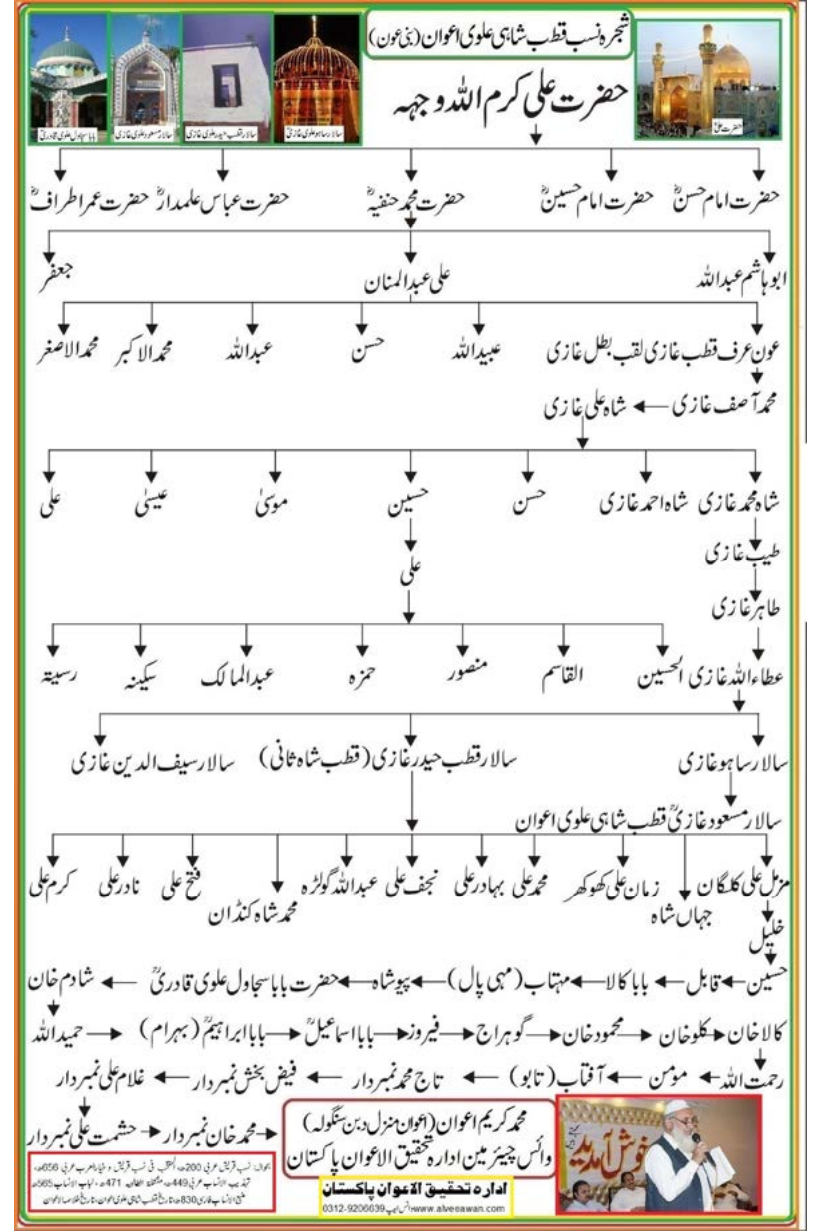 شجرہ نسب قطب شاہی علوی اعوان (بنی عون)
حضرت علی کرم اللہ وجہہ
حضرت علیؓ
سالار ساہو علوی غازیؒ
سالار قطب حیدر علوی غازی
سالار مسعود علوی غازی
بابا سجاول علوی قادریؒ
حضرت امام حسنؓ حضرت امام حسینؓ حضرت محمد حنفیہؓ حضرت عباس علمدارؓ حضرت عمر اطرافؓ
ابو ہاشم عبداللہ علی عبدالمنان جعفر
عون عرف قطب غازی لقب بطل غازی عبیداللہ حسن عبداللہ محمد الاکبر محمد الاصغر
محمد آصف غازی ← شاہ علی غازی
شاہ محمد غازی شاہ احمد غازی حسن حسین موسیٰ عیسیٰ علی
طیب غازی
علی
طاہر غازی
عطاء اللہ غازی الحسین القاسم منصور حمزہ عبدالمالک سکینہ رسیتہ
سالار ساہو غازی سالار قطب حیدر غازی (قطب شاہ ثانی) سالار سیف الدین غازی
سالار مسعود غازیؒ قطب شاہی علوی اعوان
مزمل علی کلگان جہاں شاہ زمان علی کھوکھر محمد علی بہادر علی نجف علی عبداللہ گولڑہ محمد شاہ کنڈان فتح علی نادر علی کرم علی
خلیل
حسین ← قابل ← بابا کالا ← مہتاب (مہی پال) ← پیو شاہ ← حضرت بابا سجاول علوی قادریؒ ← شادم خان
کالا خان → کلو خان → محمود خان → گوہراج → فیروز → بابا اسماعیلؒ → بابا ابراہیمؒ (بہرام) → حمید اللہ
رحمت اللہ ← مومن ← آفتاب (تابو) ← تاج محمد نمبردار ← فیض بخش نمبردار ← غلام علی نمبردار
→ محمد خان نمبردار → حشمت علی نمبردار
محمد کریم اعوان (اعوان منزل دبن سنگولہ)
وائس چیئرمین ادارہ تحقیق الاعوان پاکستان
خوش آمدید
ادارہ تحقیق الاعوان پاکستان
www.alveeawan.com وٹس ایپ 0312-9206639
بحوالہ: نسب قریش عربی 200ھ، المنتخب فی نسب قریش و خیار العرب عربی 656ھ،
تہذیب الانساب عربی 449ھ، منتقلۃ الطالبیہ 471ھ، لباب الانساب 565ھ
منبع الانساب فارسی 830ھ، تاریخ قطب شاہی علوی اعوان، تاریخ خلاصۃ الاعوان